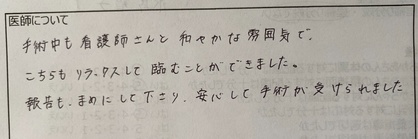 医師について
手術中も看護師さんと和やかな雰囲気で、
こちらもリラックスして臨むことができました。
報告も、まめにして下さり、安心して手術が受けられました